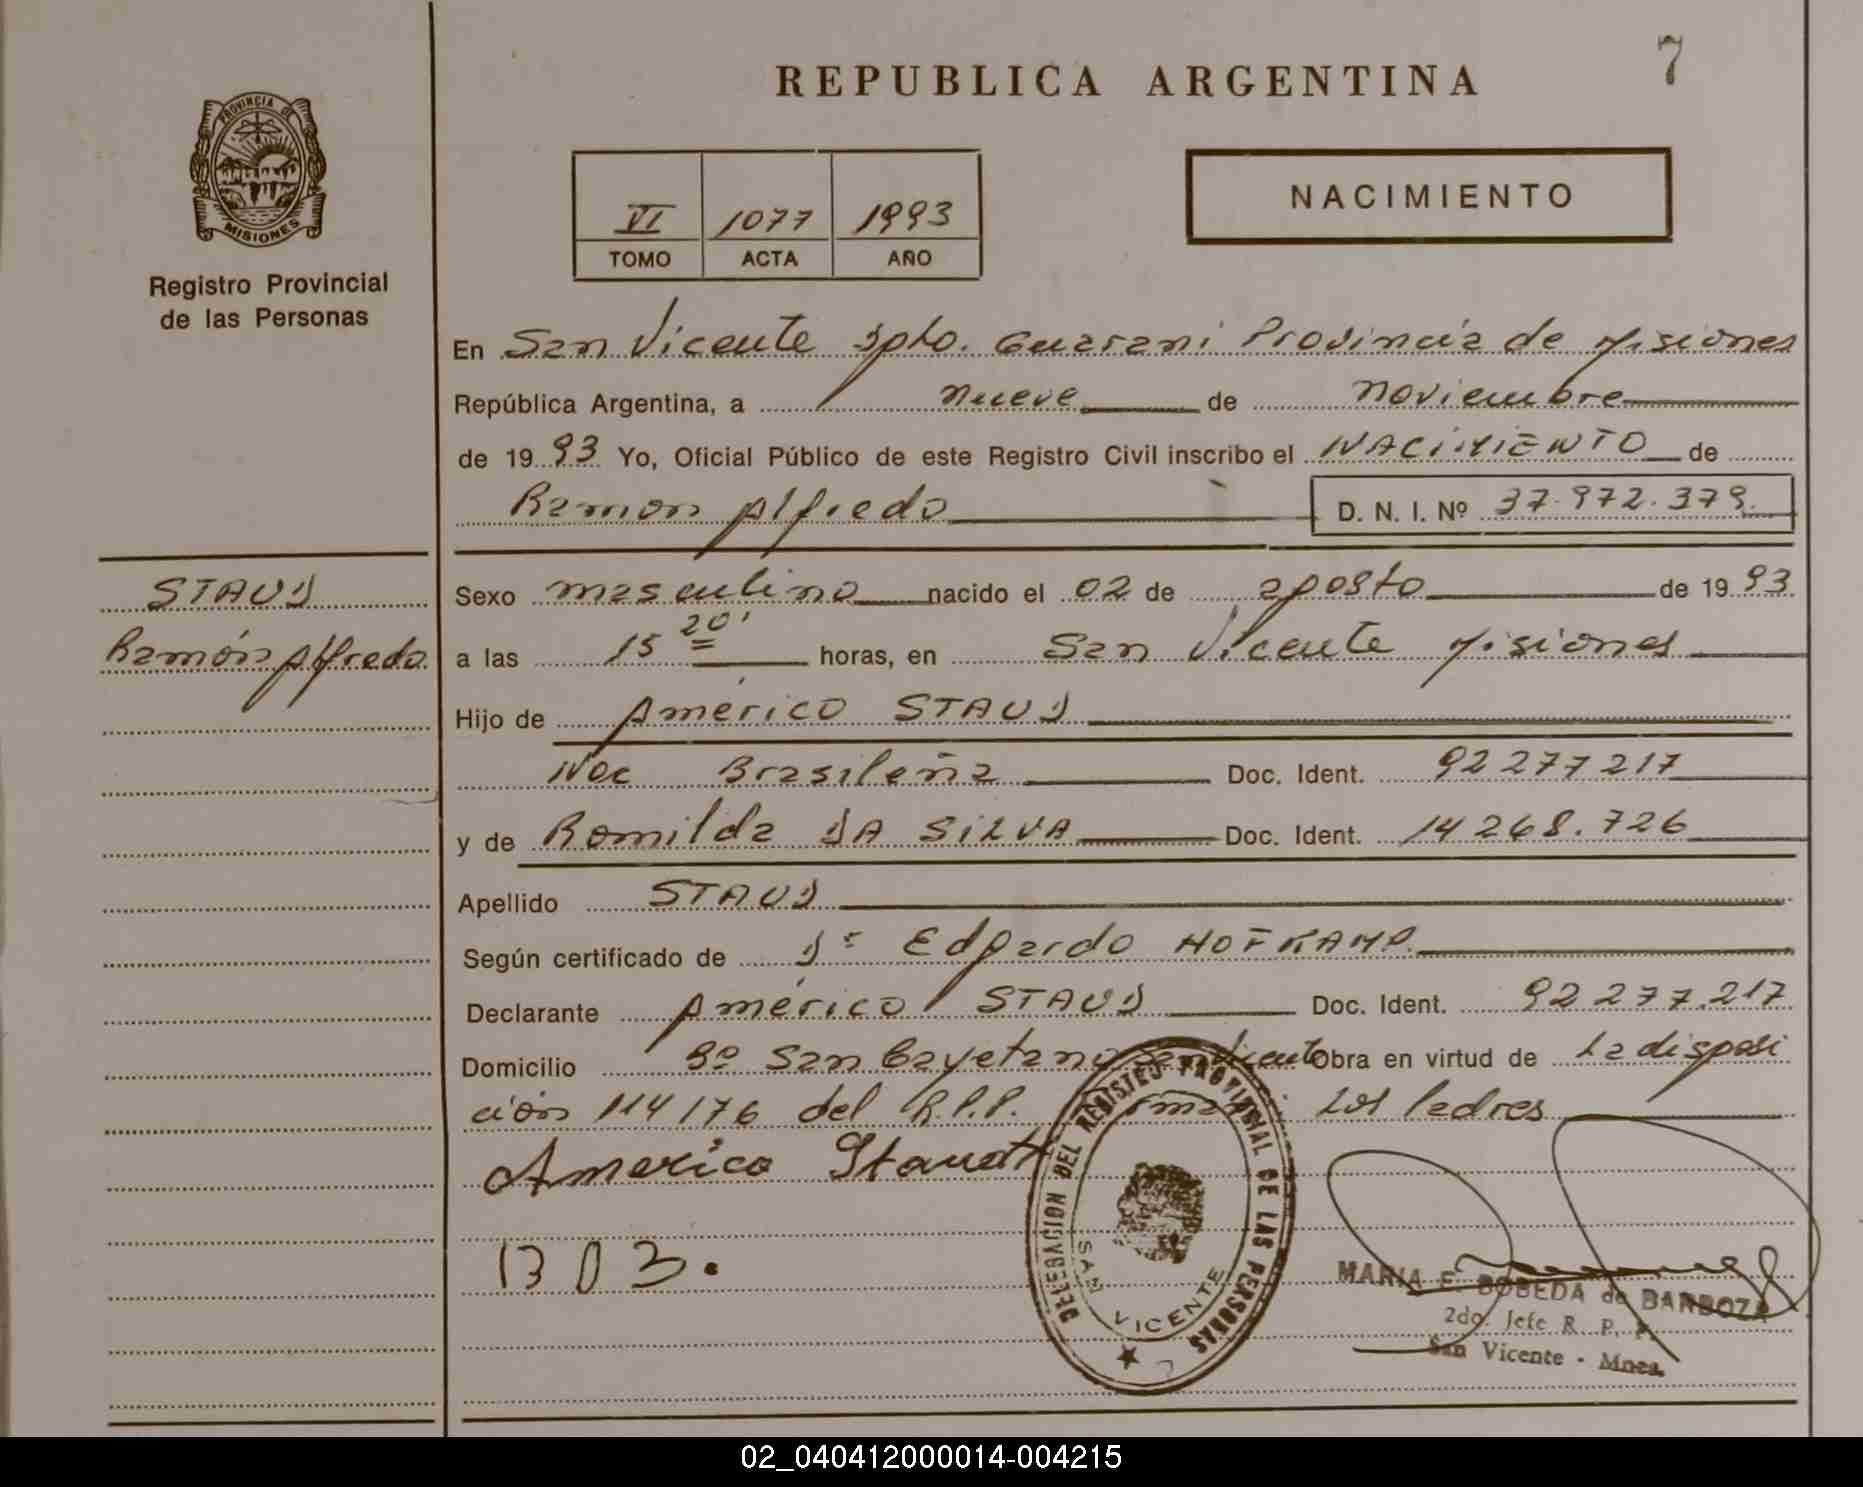 7
REPUBLICA ARGENTINA
PROVINCIA DE
MISIONES
Registro Provincial
de las Personas
VI 1077 1993
TOMO ACTA AÑO
NACIMIENTO
En San Vicente Dpto. Guarani Provincia de Misiones
República Argentina, a nueve de noviembre
de 1993 Yo, Oficial Público de este Registro Civil inscribo el NACIMIENTO de
Ramon Alfredo D. N. I. Nº 37.972.379.
STAUD
Ramón Alfredo
Sexo masculino nacido el 02 de agosto de 1993
a las 15 20' horas, en San Vicente Misiones
Hijo de Américo STAUD
Nac Brasileña Doc. Ident. 92 277 217
y de Romilda DA SILVA Doc. Ident. 14 268.726
Apellido STAUD
Según certificado de Dr Edgardo HOFKAMP
Declarante Américo STAUD Doc. Ident. 92 277.217
Domicilio Bº San Cayetano San Vicente Obra en virtud de La disposi
ción 114/76 del R.P.P. Los Padres
Americo
DELEGACION DEL REGISTRO PROVINCIAL DE LAS PERSONAS
SAN VICENTE
MARIA E. BOBEDA de BARBOZA
2do. Jefe R. P. P.
San Vicente - Mnes.
02_040412000014-004215